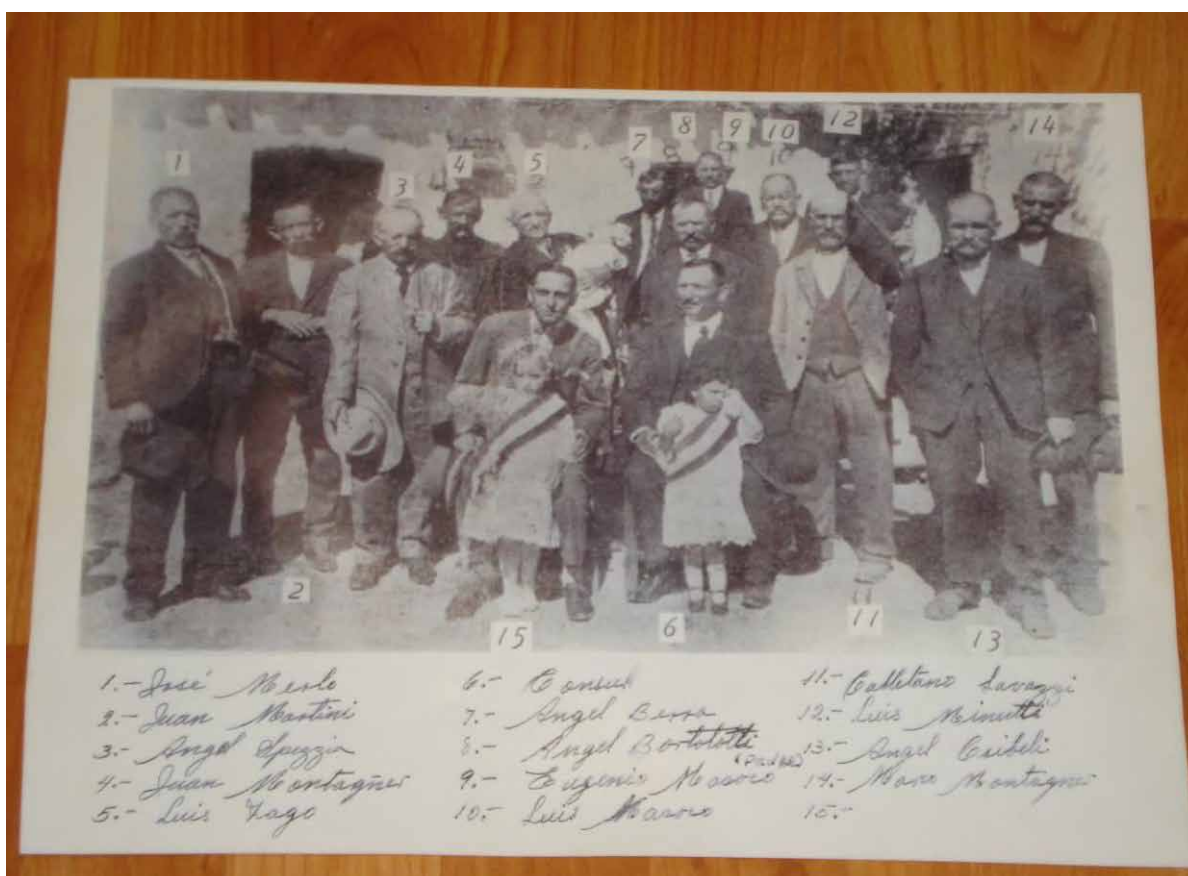 1 2 3 4 5 6 7 8 9 10 11 12 13 14 15
1.- José Merlo
2.- Juan Martini
3.- Angel Spezzia
4.- Juan Montagner
5.- Luis Zago
6.- Consul
7.- Angel Berra
8.- Angel Bortolotti
(PADRE)
9.- Eugenio
10.- Luis
11.- Savazzi
12.- Luis Minutti
13.- Angel
14.- Montagner
15.-